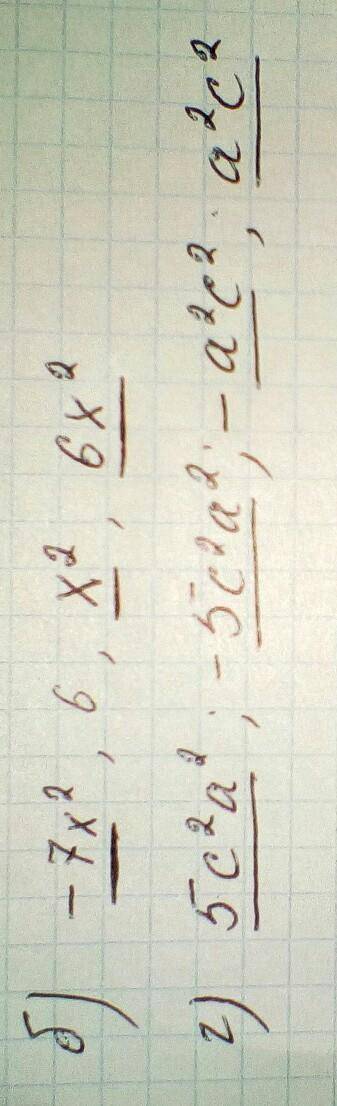 б) -7x², 6, x², 6x²
г) 5c²a²; -5c²a²; -a²c²; a²c²